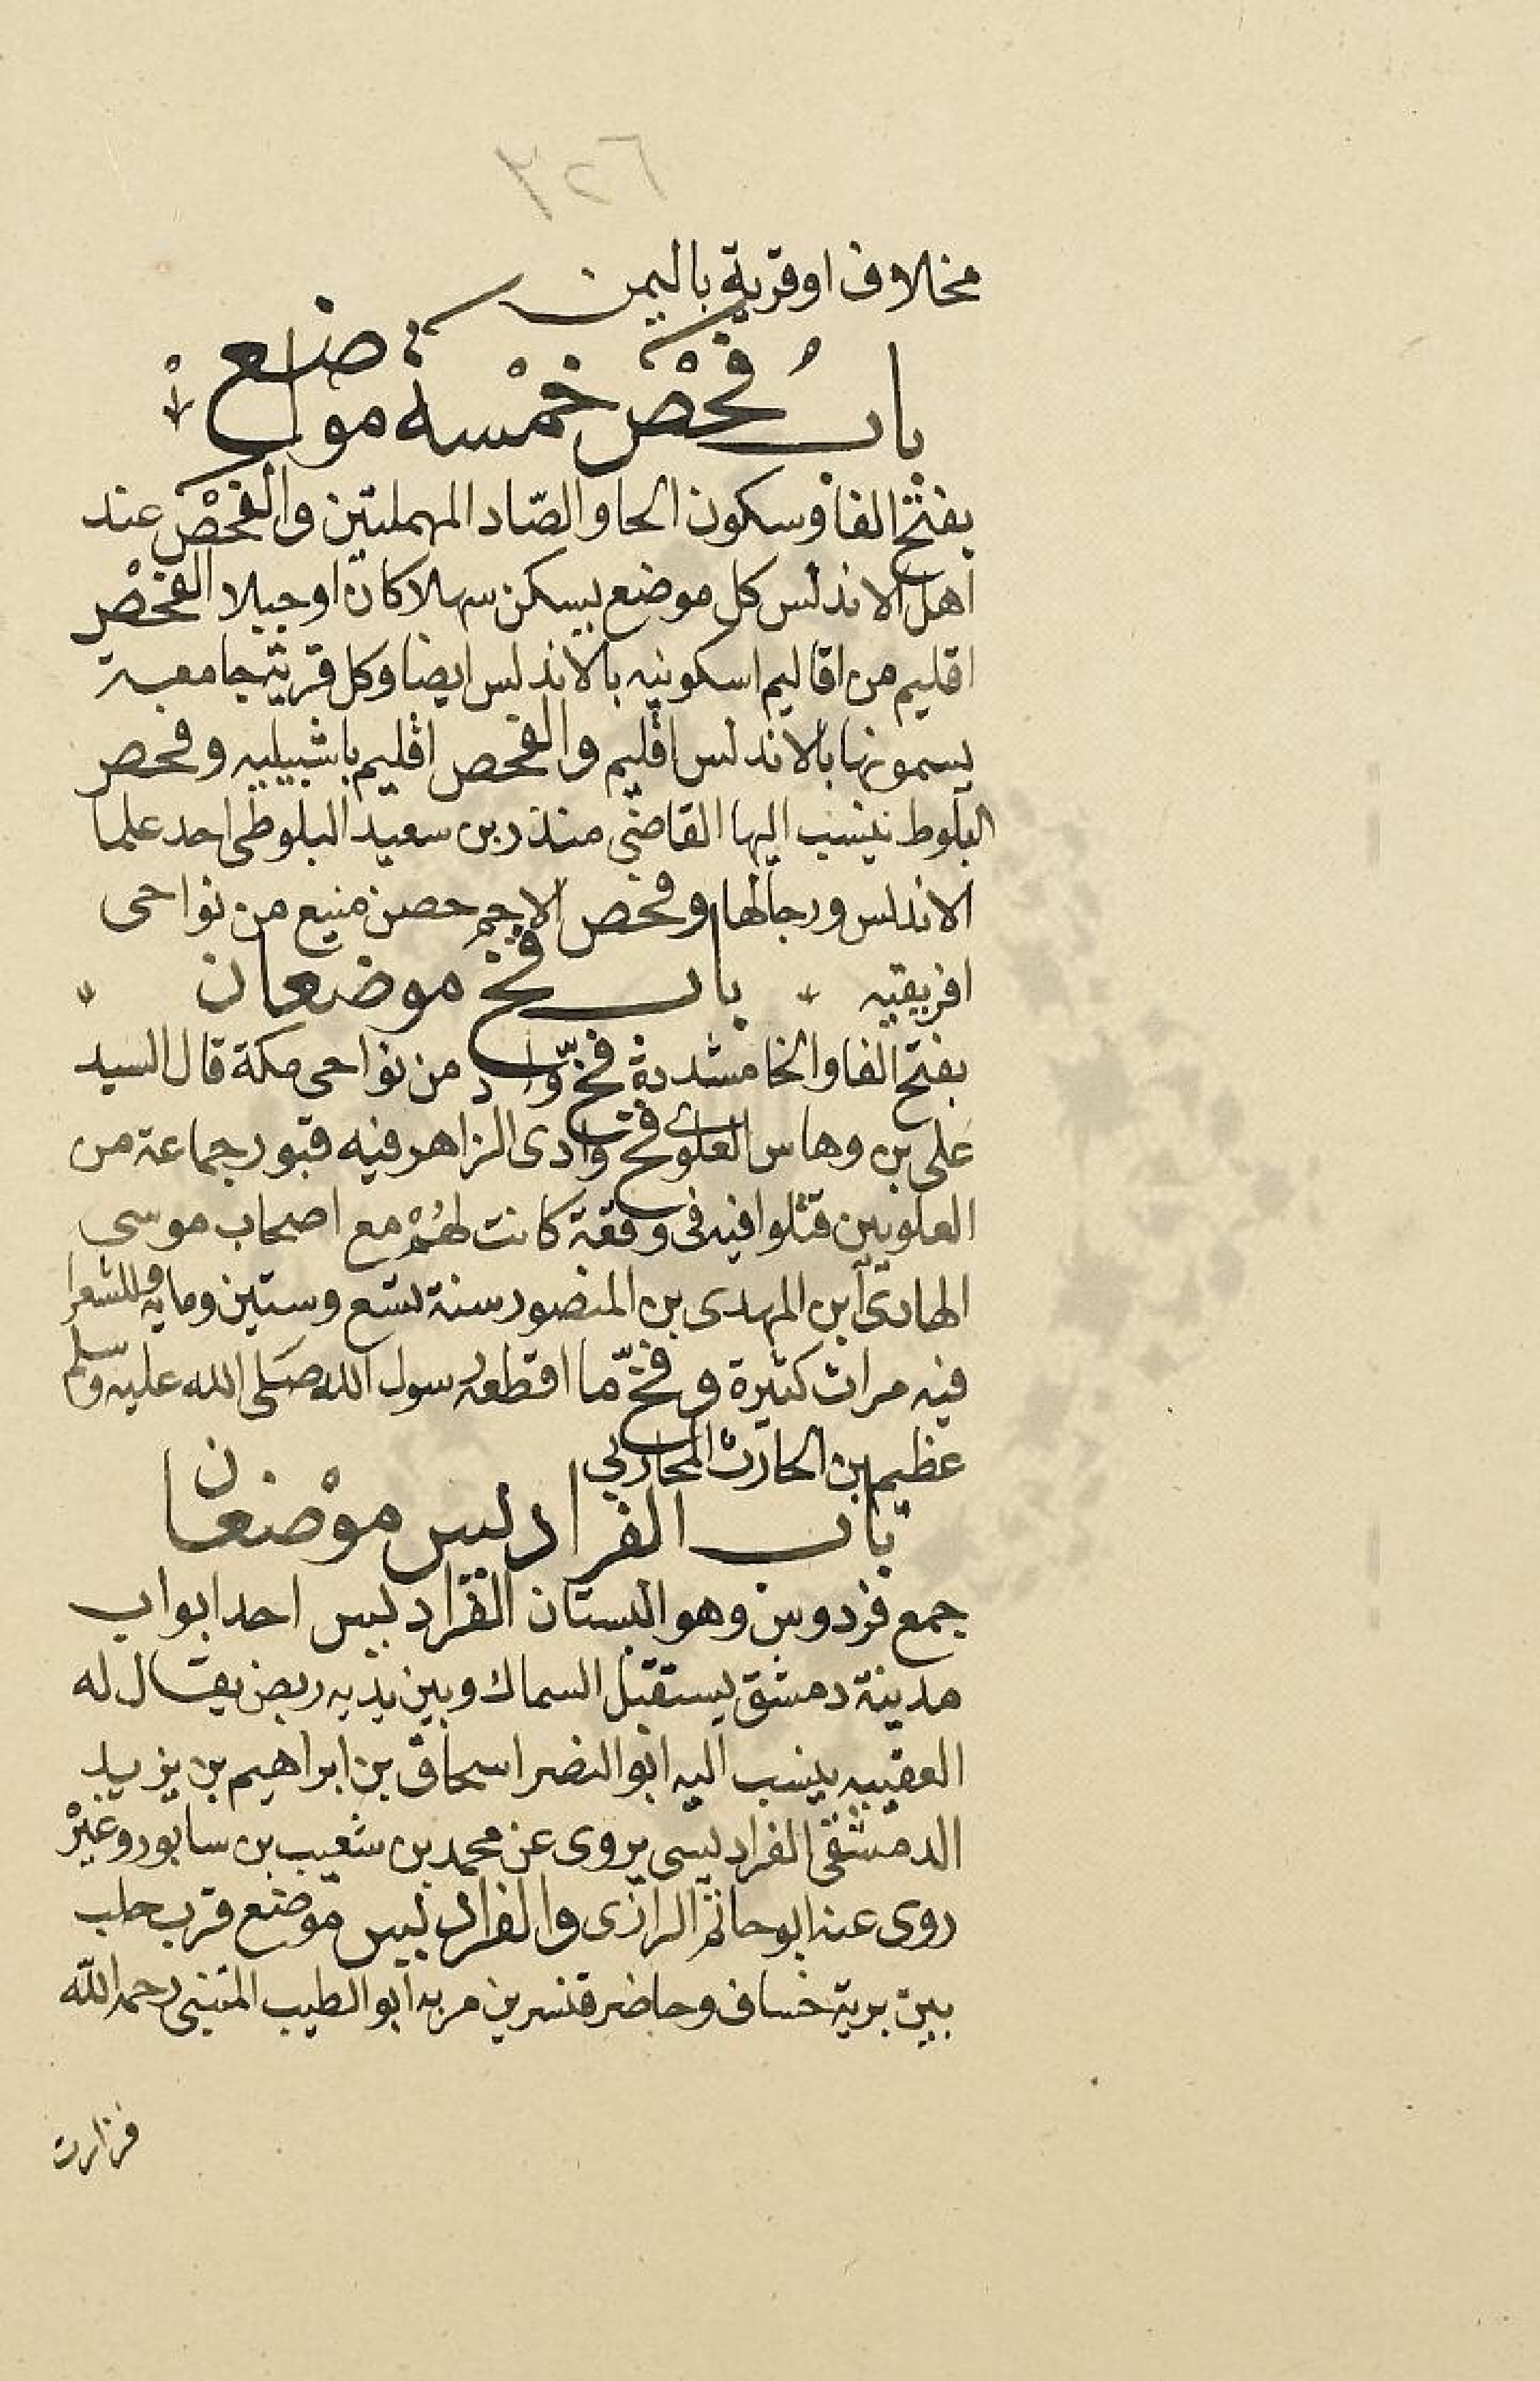 ٣٢٦
مخلاف او قرية باليمن
باب فحْص خمْسة مواضع
بفتح الفا وسكون الحا والصّاد المهملتين والفحْص عند
اهل الاندلس كل موضع يسكن سهلا كان او جبلا الفحْص
اقليم من اقاليم اسكونيه بالاندلس ايضا وكل قرية جامعة
يسمونها بالاندلس اقليم والفحص اقليم باشبيليه وفحص
البلوط ينسب اليها القاضي منذر بن سعيد البلوطي احد علما
الاندلس ورجالها وفحص الاجم حصن منيع من نواحى
افريقيه باب فخ موضعان
بفتح الفا والخا مشددة فخ وّاد من نواحى مكة قال السيد
على بن وهاس العلوى فخ وادى الزاهر فيه قبور جماعة من
العلويين قتلوا فيه فى وقعة كانت لهُمْ مع اصحاب موسى
الهادى ابن المهدى بن المنصور سنة تسع وستين ومايه وللشعرا
فيه مراث كثيرة وفخ مّا اقطعه رسول الله صَلى الله عليه وسلم
عظيم بن الحارث المحاربي
باب الفراديس موْضعان
جمع فردوس وهو البستان الفراديس احد ابواب
مدينة دمشق يستقبل السماك وبين يديه ربض يقال له
العقيبه ينسب اليه ابو النضر اسحاق بن ابراهيم بن يزيد
الدمشقى الفراديسى يروى عن محمد بن شعيب بن سابور وغيرْ
روى عنه ابو حاتم الرازى والفراديس موضع قرب حلب
بين برية خساف وحاضر قنسرين مر به ابو الطيب المتنبى رحمه الله
فزارت